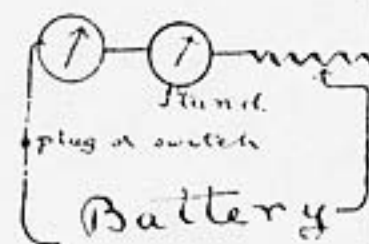 Stand.
plug or switch
Battery